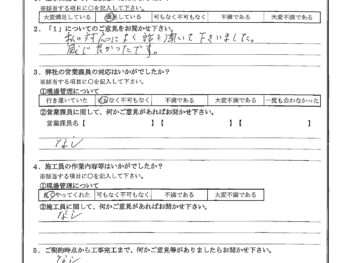 ※該当する項目に○を記入して下さい。
大変満足している 満足している 可もなく不可もなく 不満である 大変不満である
2．「1」についてのご意見をお聞かせ下さい。
私の対応によく話を聞いて下さいました。
感じ良かったです。
3．弊社の営業課員の対応はいかがでしたか？
※該当する項目に○を記入して下さい。
①現場管理について
行き届いていた 可もなく不可もなく 不満である 大変不満である 一度も会わなかった
②営業課員に関して、何かご意見があればお聞かせ下さい。
営業課員名【 】【 】【 】
なし
4．施工員の作業内容等はいかがでしたか？
※該当する項目に○を記入して下さい。
①現場管理について
良くやってくれた 可もなく不可もなく 不満である 大変不満である
②施工員に関して、何かご意見があればお聞かせ下さい。
なし
5．ご契約時点から工事完工まで、何かご意見等がありましたらお聞かせ下さい。
なし